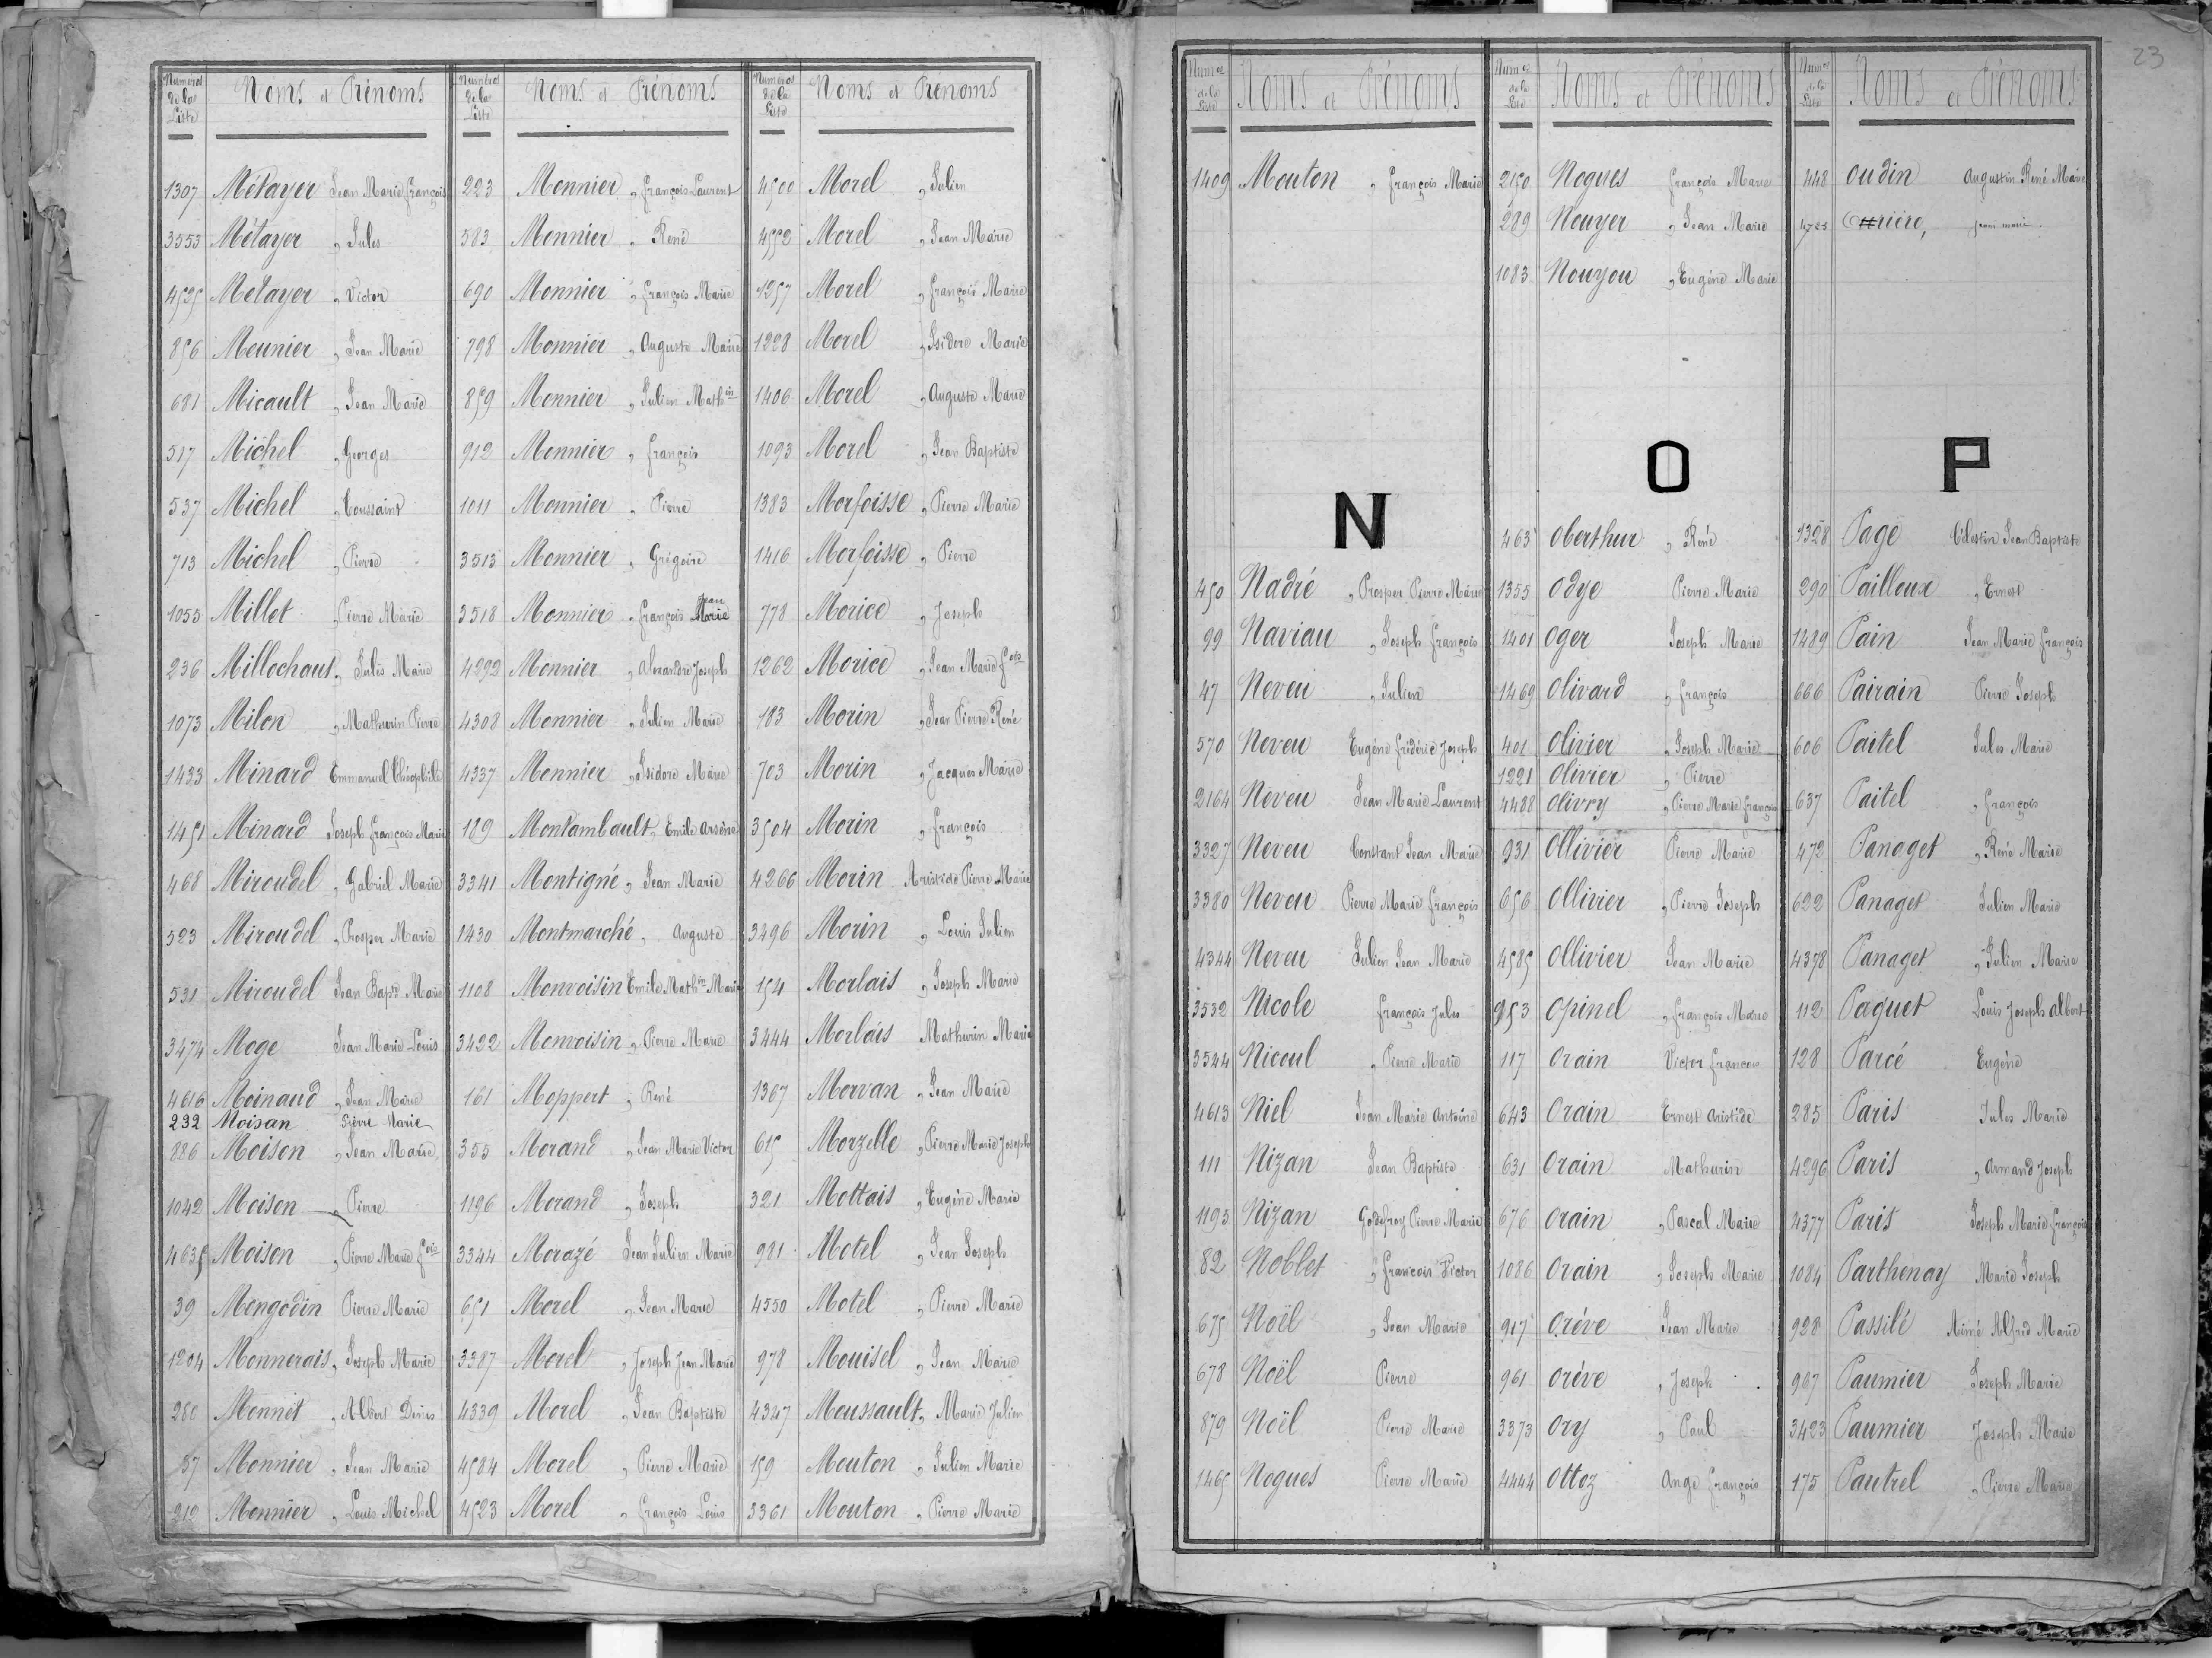 Numéros de la Liste Noms et Prénoms
1307 Métayer Jean Marie François
3553 Métayer „ Jules
4525 Métayer „ Victor
856 Meunier „ Jean Marie
681 Micault „ Jean Marie
517 Michel „ Georges
537 Michel „ Toussaint
713 Michel „ Pierre
1055 Millet „ Pierre Marie
236 Millochaut „ Jules Marie
1073 Milon „ Mathurin Pierre
1433 Minard Emmanuel Théophile
1451 Minard Joseph François Marie
468 Miroudel „ Gabriel Marie
523 Miroudel „ Prosper Marie
531 Miroudel Jean Bapte Marie
3474 Moge Jean Marie Louis
4616 Moinaud „ Jean Marie
232 Moisan Pierre Marie
286 Moison „ Jean Marie
1042 Moison „ Pierre
4635 Moison „ Pierre Marie fois
39 Mongodin Pierre Marie
1204 Monnerais „ Joseph Marie
280 Monnet „ Albert Denis
37 Monnier „ Jean Marie
212 Monnier „ Louis Michel
Numéros de la Liste Noms et Prénoms
223 Monnier „ François Laurent
583 Monnier „ René
690 Monnier „ François Marie
798 Monnier „ Auguste Marie
859 Monnier „ Julien Mathin
912 Monnier „ François
1011 Monnier „ Pierre
3513 Monnier „ Grégoire
3518 Monnier „ François Jean Marie
4292 Monnier „ Alexandre Joseph
4308 Monnier „ Julien Marie
4337 Monnier „ Isidore Marie
189 Montambault „ Emile Arsène
3341 Montigné „ Jean Marie
1430 Montmarché „ Auguste
1108 Monvoisin Emile Mathin Marie
3422 Monvoisin „ Pierre Marie
161 Moppert „ René
355 Morand „ Jean Marie Victor
1196 Morand „ Joseph
3344 Morazé Jean Julien Marie
651 Morel „ Jean Marie
3387 Morel „ Joseph Jean Marie
4339 Morel „ Jean Baptiste
4584 Morel „ Pierre Marie
4523 Morel „ François Louis
Numéros de la Liste Noms et Prénoms
4500 Morel „ Julien
4552 Morel „ Jean Marie
1257 Morel „ François Marie
1228 Morel „ Isidore Marie
1406 Morel „ Auguste Marie
1093 Morel „ Jean Baptiste
1383 Morfoisse „ Pierre Marie
1416 Morfoisse „ Pierre
778 Morice „ Joseph
1262 Morice „ Jean Marie fois
183 Morin „ Jean Pierre René
703 Morin „ Jacques Marie
3504 Morin „ François
4266 Morin Aristide Pierre Marie
3496 Morin „ Louis Julien
154 Morlais „ Joseph Marie
3444 Morlais Mathurin Marie
1367 Morvan „ Jean Marie
615 Morzelle „ Pierre Marie Joseph
321 Mottais „ Eugène Marie
981 Motel „ Jean Joseph
4550 Motel „ Pierre Marie
978 Mouisel „ Jean Marie
4347 Moussault „ Marie Julien
159 Mouton „ Julien Marie
3361 Mouton „ Pierre Marie
23
Numos de la Liste Noms et Prénoms
1409 Mouton „ François Marie
N
450 Nadré „ Prosper Pierre Marie
99 Naviau „ Joseph François
47 Neveu „ Julien
570 Neveu Eugène frédéric Joseph
2164 Neveu Jean Marie Laurent
3327 Neveu Constant Jean Marie
3380 Neveu Pierre Marie François
4344 Neveu Julien Jean Marie
3532 Nicole François Jules
3544 Nicoul „ Pierre Marie
4613 Niel Jean Marie Antoine
111 Nizan Jean Baptiste
1195 Nizan Godefroy Pierre Marie
82 Noblet „ François Victor
675 Noël „ Jean Marie
678 Noël Pierre
879 Noël Pierre Marie
1465 Nogues Pierre Marie
Numos de la Liste Noms et Prénoms
2150 Nogues François Marie
289 Nouyer „ Jean Marie
1083 Nouyou „ Eugène Marie
O
463 Oberthur „ René
1355 Odye Pierre Marie
1401 Oger Joseph Marie
1469 Olivard „ François
401 Olivier „ Joseph Marie
1221 Olivier „ Pierre
4488 Olivry „ Pierre Marie François
931 Ollivier Pierre Marie
656 Ollivier „ Pierre Joseph
4585 Ollivier Jean Marie
953 Opinel „ François Marie
117 Orain Victor François
643 Orain Ernest Aristide
631 Orain Mathurin
676 Orain „ Pascal Marie
1086 Orain „ Joseph Marie
917 Orève Jean Marie
961 Orève „ Joseph
3373 Ory „ Paul
4444 Ottoz Ange François
Numos de la Liste Noms et Prénoms
448 Oudin Augustin René Marie
4723 jean marie
P
1328 Pagé Célestin Jean Baptiste
290 Pailloux „ Ernest
1489 Pain Jean Marie François
666 Pairain Pierre Joseph
606 Paitel Jules Marie
637 Paitel „ François
472 Panaget „ René Marie
622 Panaget Julien Marie
4378 Panaget „ Julien Marie
112 Paquet Louis Joseph Albert
128 Parcé Eugène
285 Paris Jules Marie
4296 Paris „ Armand Joseph
4377 Paris Joseph Marie François
1084 Parthenay Marie Joseph
928 Passilé Aimé Alfred Marie
967 Paumier Joseph Marie
3423 Paumier Joseph Marie
175 Pautrel „ Pierre Marie